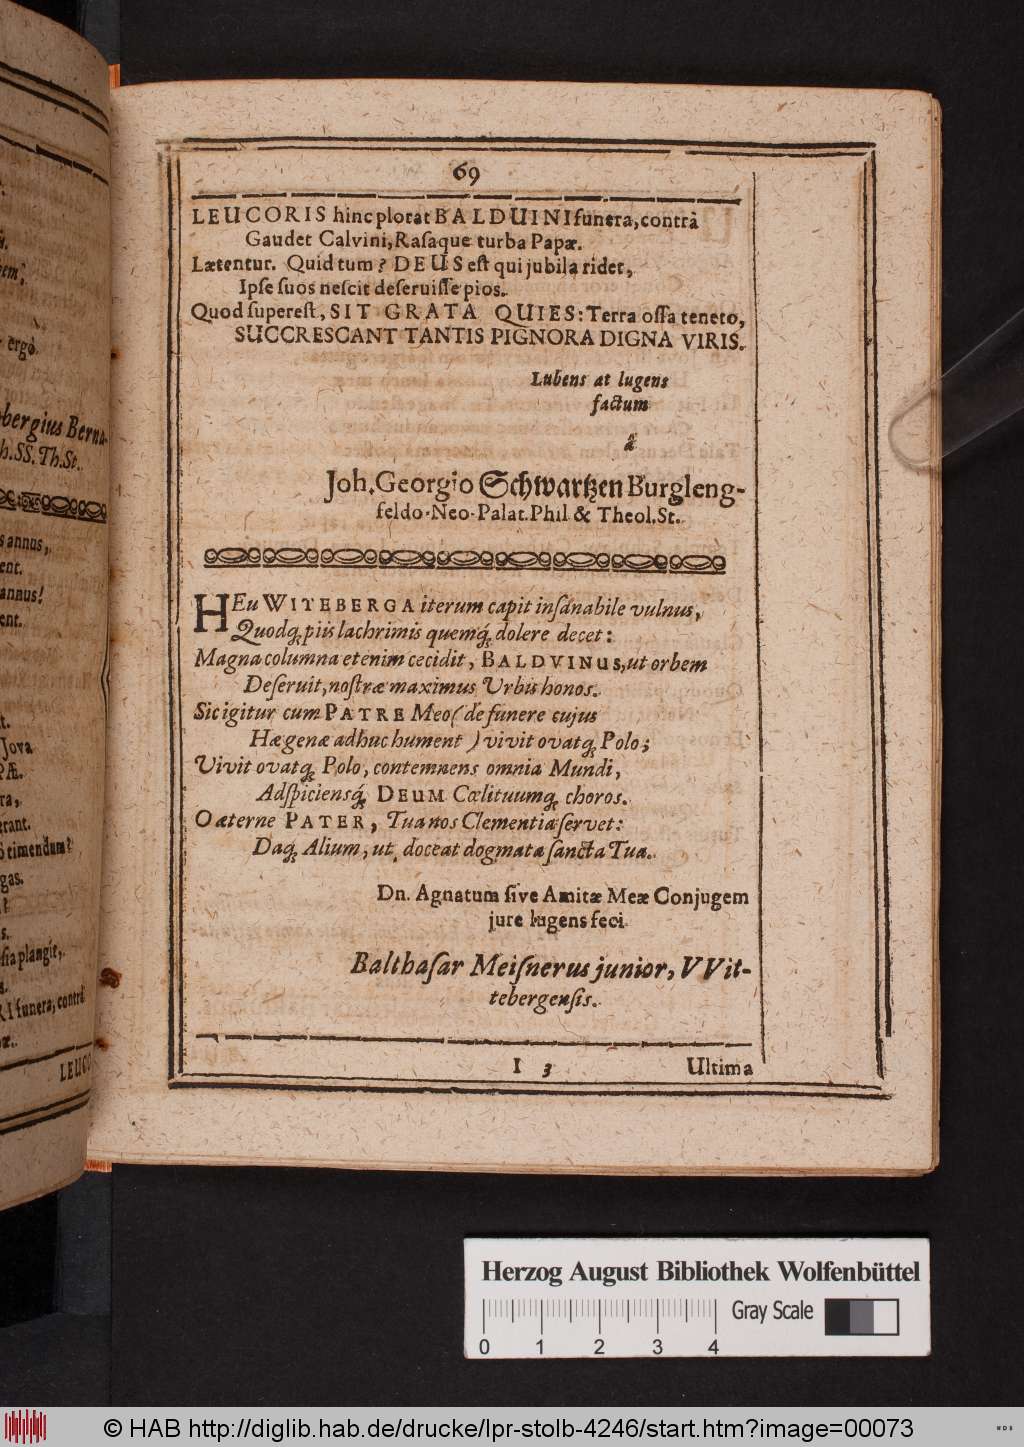 .
em,
ergò
bergius Berna-
h.SS.Th.St.
s annus,
ent.
annus!
ent.
t.
Jova
PÆ.
ra,
erant.
ò timendum?
gas.
!
s.
sia plangit,
s.
RI funera, contrà
æ.
LEUCO
69
LEUCORIS hinc plorat BALDUINI funera, contrà
Gaudet Calvini, Rasaque turba Papæ.
Lætentur. Quid tum? DEUS est qui jubila ridet,
Ipse suos nescit deseruisse pios.
Quod superest, SIT GRATA QUIES: Terra ossa teneto,
SUCCRESCANT TANTIS PIGNORA DIGNA VIRIS.
Lubens at lugens
factum
â
Joh. Georgio Schwartzen Burgleng-
feldo-Neo-Palat. Phil & Theol. St.
HEu WITEBERGA iterum capit insanabile vulnus,
Quodq́; piis lachrimis quemq́; dolere decet:
Magna columna etenim cecidit, BALDVINUS, ut orbem
Deseruit, nostræ maximus Urbis honos.
Sic igitur cum PATRE Meo (de funere cujus
Hægenæ adhuc hument) vivit ovatq; Polo;
Vivit ovatq; Polo, contemnens omnia Mundi,
Adspiciensq́; DEUM Cœlituumq; choros.
O æterne PATER, Tua nos Clementia servet:
Daq; Alium, ut, doceat dogmata sancta Tua.
Dn. Agnatum sive Amitæ Meæ Conjugem
jure lugens feci
Balthasar Meisnerus junior, VVit-
tebergensis.
I 3 Ultima
Herzog August Bibliothek Wolfenbüttel
Gray Scale
0 1 2 3 4
© HAB http://diglib.hab.de/drucke/lpr-stolb-4246/start.htm?image=00073